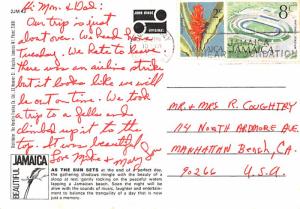 Hi Mom & Dad:
Our trip is just
about over. We head home
Tuesday. We hate to leave.
There was an airline strike
but it looks like we will
be out on time. We took
a trip to a falls and
climbed up it to the
top. It was beautiful
Love Mike & Mary Jan
JAMAICA
BEAUTIFUL
AS THE SUN SETS at the end of a perfect day,
the gathering shadows mingle with the beauty of a
sloop at rest, gently rocking on the peaceful waters
lapping a Jamaican beach. Soon the night will be
alive with the sounds of music, laughter and entertain-
2c
JAMAICA
8c
JAMAICA
MR & MRS R. COUGHTRY
114 NORTH ARDMORE AVE
MANHATTAN BEACH, CA.
90266 U.S.A.